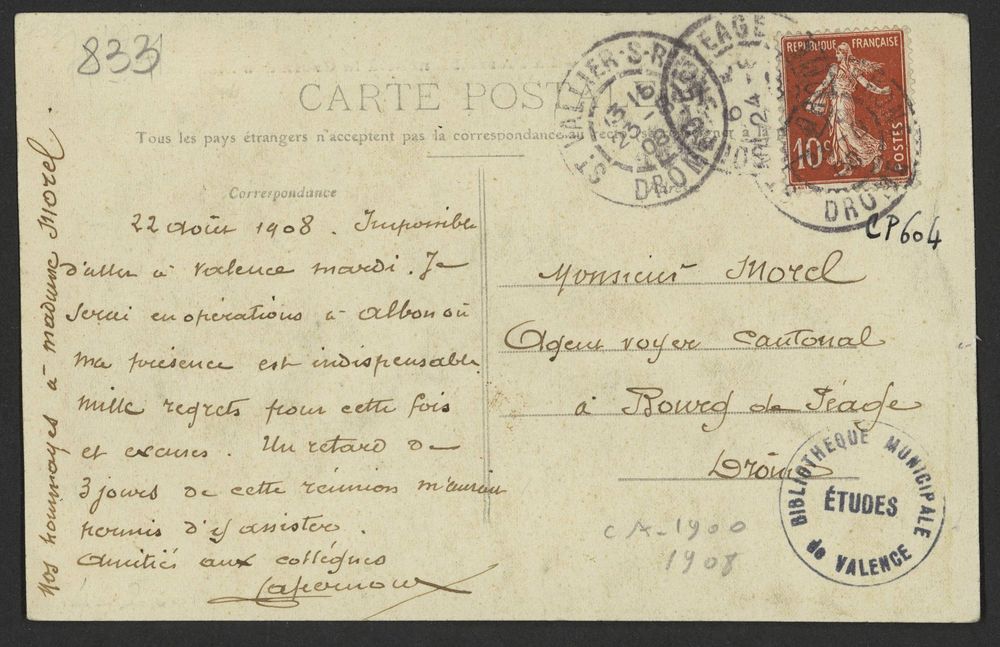 833
CARTE POST
Tous les pays étrangers n'acceptent pas la correspondance au
ST VALLIER-S-RHONE
DROME
16
08
PEAGE
24
DROME
REPUBLIQUE FRANÇAISE
10c
POSTES
CP604
Correspondance
22 août 1908. Impossible
d'aller à Valence mardi. Je
serai en opérations à Albon où
ma présence est indispensable
Mille regrets pour cette fois
et excuses. Un retard de
3 jours de cette réunion m'aurait
permis d'y assister.
Amitiés aux collègues
Nos hommages à madame Morel.
Monsieur Morel
Agent voyer cantonal
à Bourg de Péage
Drôme
ca-1900
1908
BIBLIOTHEQUE MUNICIPALE
ÉTUDES
de VALENCE